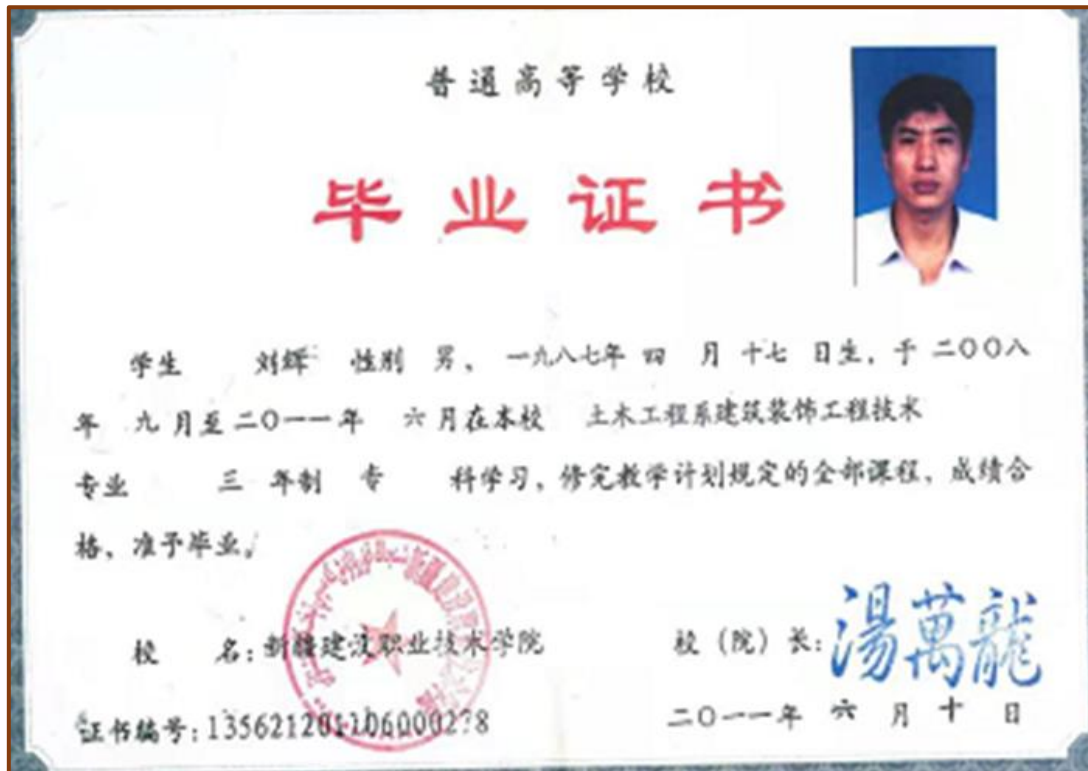 普通高等学校
毕业证书
学生 刘辉 性别 男、 一九八七年 四 月 十七 日生,于 二〇〇八
年 九 月至 二〇一一年 六 月在本校 土木工程系建筑装饰工程技术
专业 三 年制 专 科学习,修完教学计划规定的全部课程,成绩合
格,准予毕业。
校 名:新疆建设职业技术学院
校(院)长:湯萬龍
证书编号:135621201106000278
二〇一一年 六 月 十 日